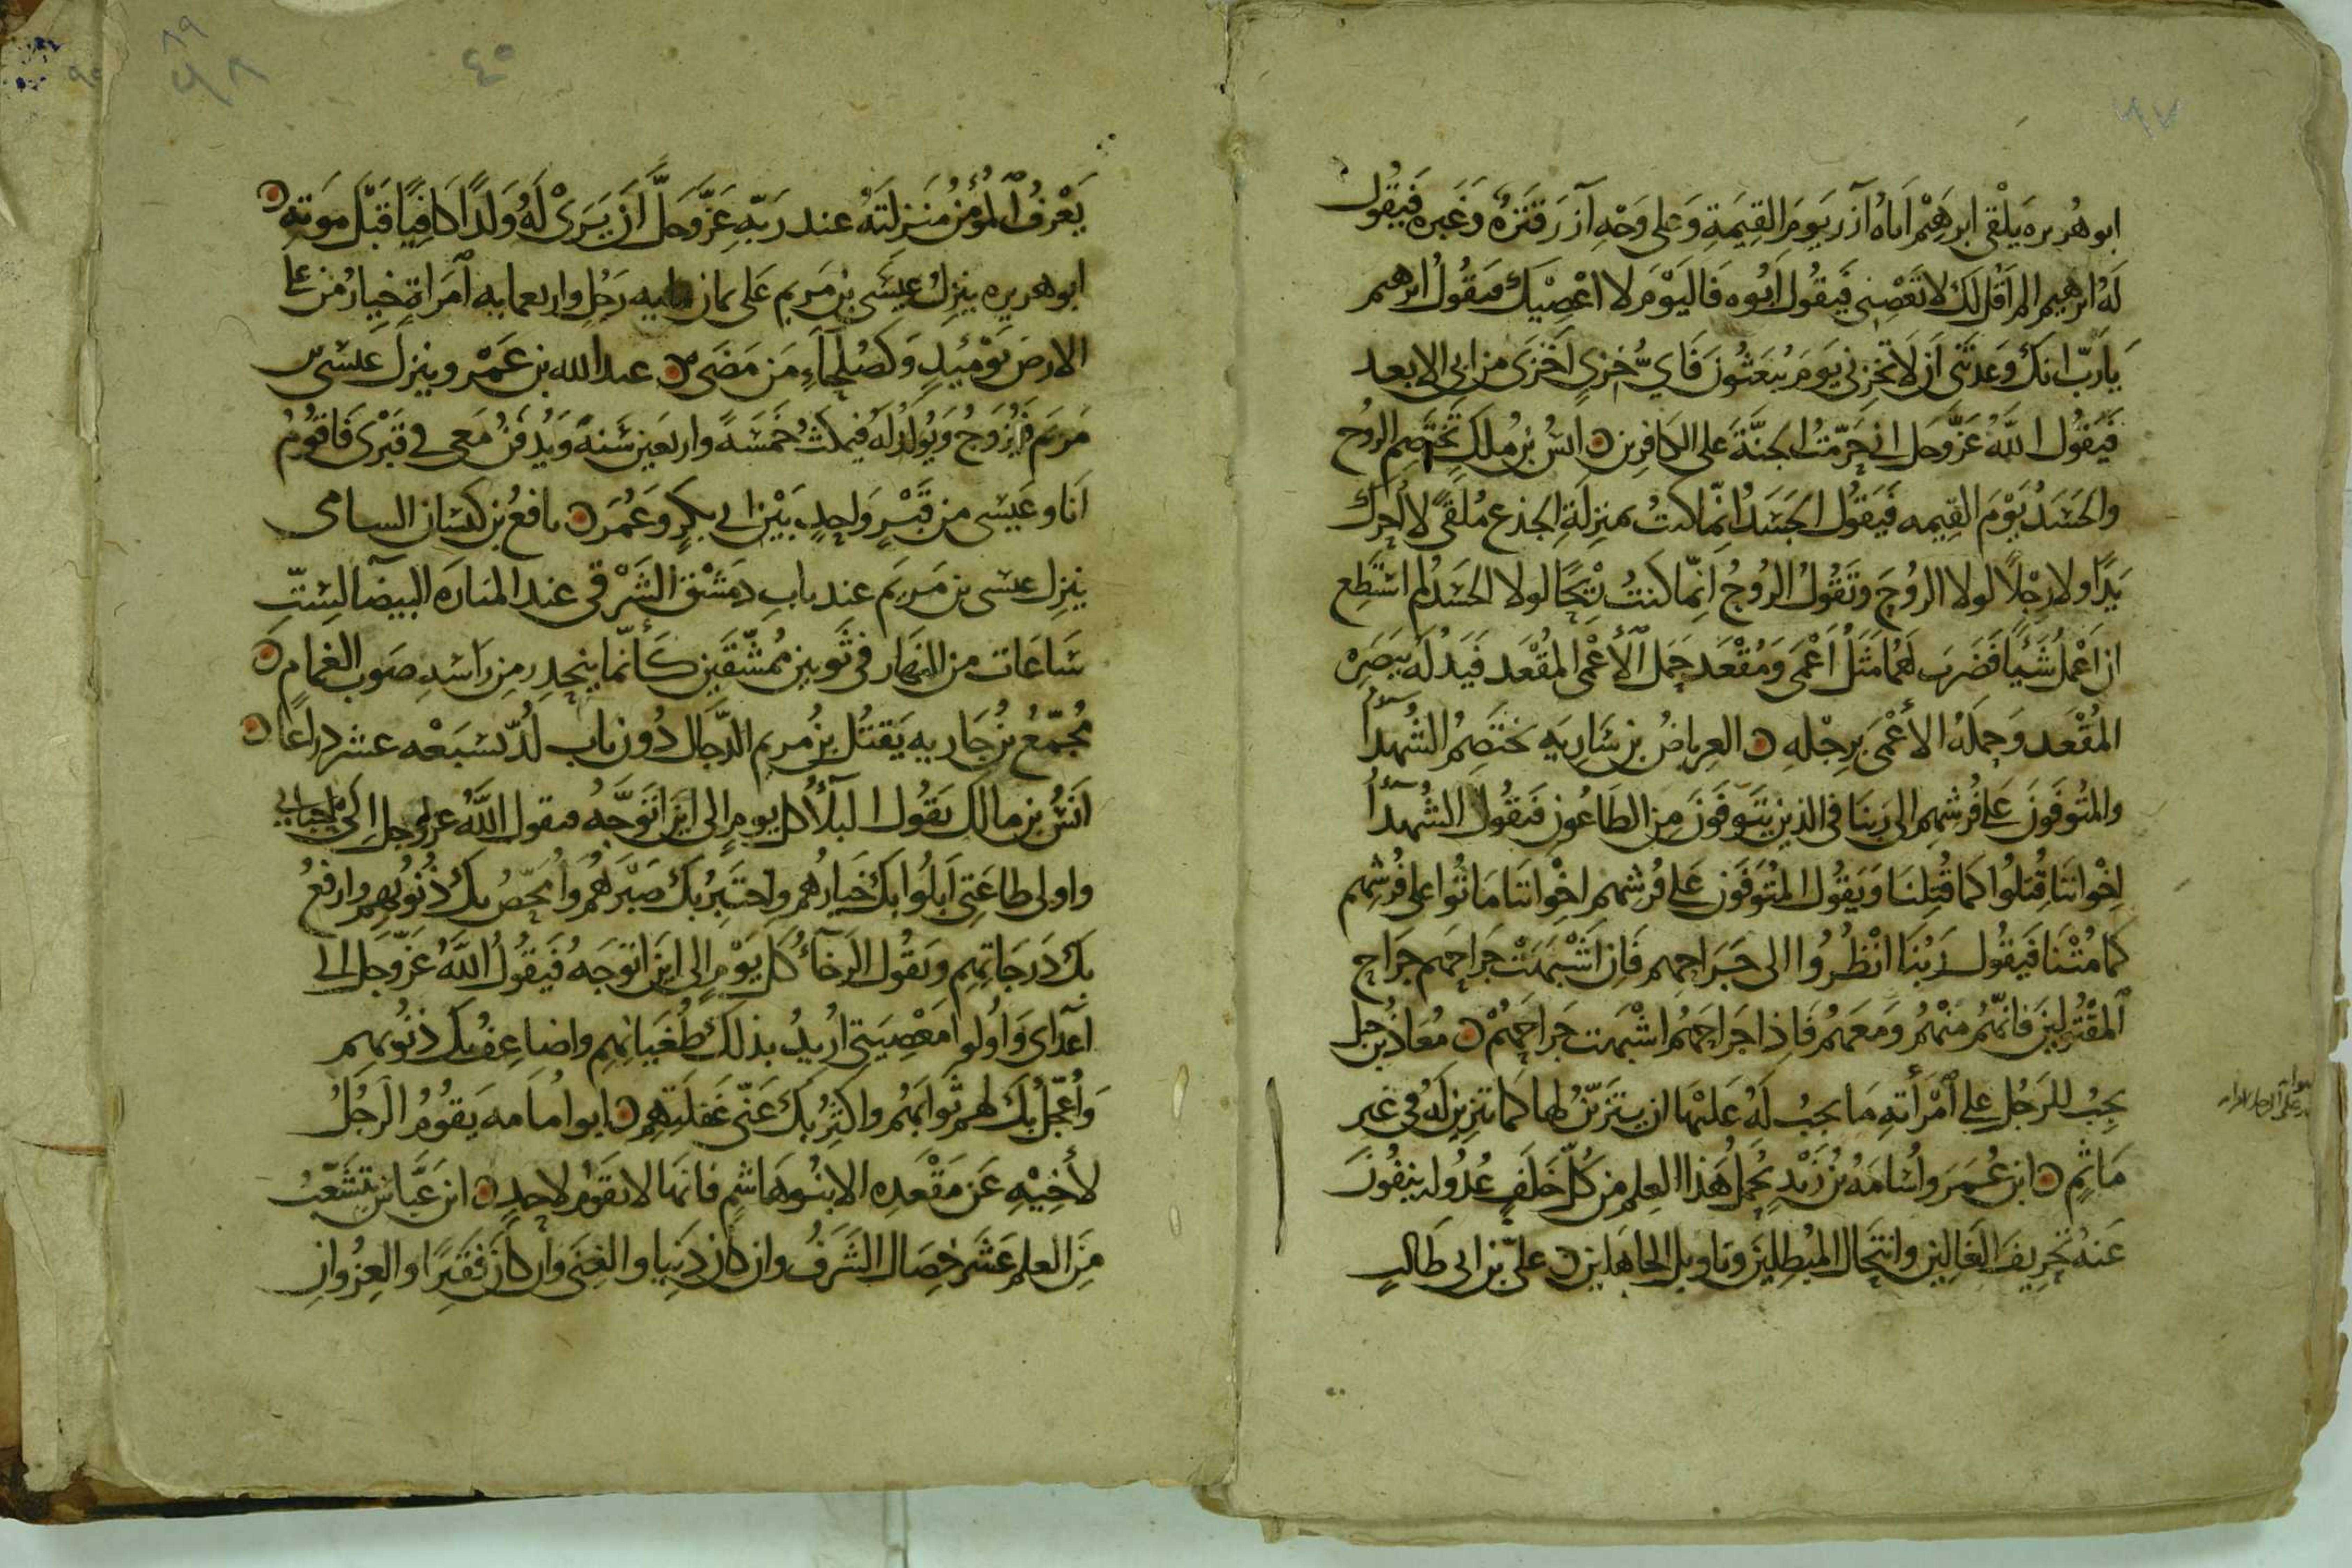 ابو هُريره يَلْقى ابرهيم اباه آزر يوم القيمة وعلى وجه آزر قترة وغبره فيقول
له ابرهيم الم اقل لك لا تعصني فيقول ابوه فاليوم لا اعصيك فيقول ابرهيم
يا ربّ انك وعدتني ان لا تخزني يوم يبعثون فايّ خزي اخزى من ابي الابعد
فيقول الله عزّ وجل اني حرّمت الجنّة على الكافرين انس بن ملك تختصم الروح
والجسد يوم القيمه فيقول الجسد انّما كنت بمنزلة الجذع ملقى لا احرك
يدًا ولا رجلاً لولا الروح وتقول الروح انّما كنت ريحًا لولا الجسد لم استطع
ان اعمل شيأ فضرب لهما مثل اعمى ومقعد حمل الأعمى المقعد فيدله ببصره
المقعد وحمله الأعمى برجله العرباض بن ساريه يختصم الشهدآ
والمتوفون على فرشهم الى ربنا في الذين يتوفون من الطاعون فيقول الشهدآ
اخواننا قتلوا كما قتلنا ويقول المتوفون على فرشهم اخواننا ماتوا على فرشهم
كما متنا فيقول ربنا انظروا الى جراحهم فان اشبهت جراحهم جراح
المقتولين فانّهم منهم ومعهم فاذا جراحهم اشبهت جراحهم معاذ بن جبل
يجب للرجل على امرأته ما يجب له عليها ان يتزيّن لها كما تتزين له في غير
ماثم ابن عمر واسامه بن زيد يحمل هذا العلم من كلّ خلف عدوله ينفون
عنه تحريف الغالين وانتحال المبطلين وتاويل الجاهلين علىّ بن ابي طالب
٤٥
يعرف المؤمن منزلته عند ربّه عزّ وجلّ ان يرى له ولدًا كافيًا قبل موته
ابو هريره ينزل عيسى بن مريم على ثمان مايه رجل واربعمايه امراة خيار من على
الارض يومئيذ وكصلحاء من مضى عبد الله بن عمر وينزل عيسى بن
مريم فيزوج ويولد له فيمكث خمسة واربعين سنة ويدفن معي في قبري فاقوم
انا وعيسى من قبر واحد بين ابي بكر وعمر نافع بن كيسان السامي
ينزل عيسى بن مريم عند باب دمشق الشرقى عند المناره البيضآ لستّ
ساعات من النهار في ثوبين ممشّقين كأنّما ينحدر من راسه صوب الغمام
مجمّع بن جاريه يقتل بن مريم الدّجال دون باب لدّ بسبعه عشر ذراعًا
انس بن مالك يقول البلآ كل يوم الى اين اتوجّه فيقول الله عز وجل الى احبابي
واولى طاعتي ابلوا بك خيارهم واختبر بك صبرهم وامحّص بك ذنوبهم وارفع
بك درجاتهم ويقول الرخآء كل يوم الى اين اتوجه فيقول الله عزّ وجل الى
اعدآى واولوا معصيتي اريد بذلك طغيانهم واضاعف بك ذنوبهم
واعجّل بك لهم ثوابهم واكثر بك عنّى غفلتهم ابو امامه يقوم الرجل
لأخيه عن مقعده الا بنو هاشم فانها لا تقوم لاحد ابن عبّاس يتشعّب
من العلم عشر خصال الشرف وان كان دنيا والغنى وان كان فقيرًا والعز وان